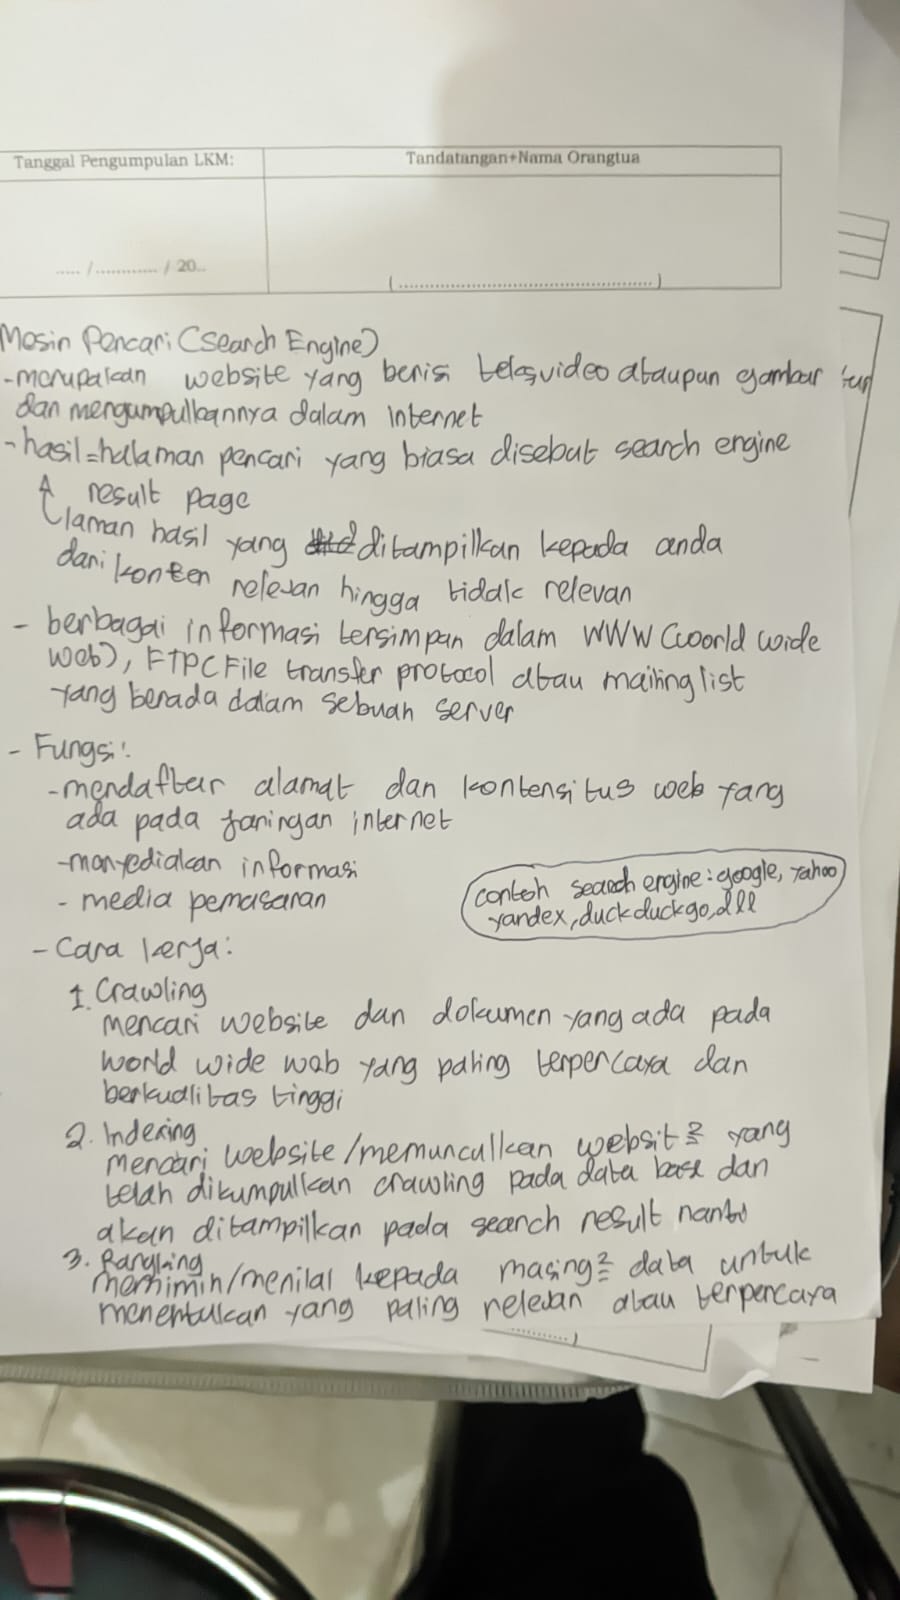 Tanggal Pengumpulan LKM:
Tandatangan+Nama Orangtua
..... /............. / 20..
(................................................)
Mesin Pencari (Search Engine)
-merupakan website yang berisi teks, video ataupun gambar
dan mengumpulkannya dalam internet
-hasil=halaman pencari yang biasa disebut search engine
result page
laman hasil yang ditampilkan kepada anda
dari konten relevan hingga tidak relevan
- berbagai informasi tersimpan dalam WWW (world wide
web), FTP(File transfer protocol atau mailing list
yang berada dalam sebuah server
- Fungsi:
-mendaftar alamat dan konten situs web yang
ada pada jaringan internet
-menyediakan informasi
- media pemasaran
contoh search engine: google, yahoo
yandex, duckduckgo, dll
- Cara kerja:
1. Crawling
mencari website dan dokumen yang ada pada
world wide web yang paling terpercaya dan
berkualitas tinggi
2. Indexing
mencari website/memunculkan websit2 yang
telah dikumpulkan crawling pada data base dan
akan ditampilkan pada search result nanti
3.
/menilai kepada masing2 data untuk
menentukan yang paling relevan atau terpercaya
...........)